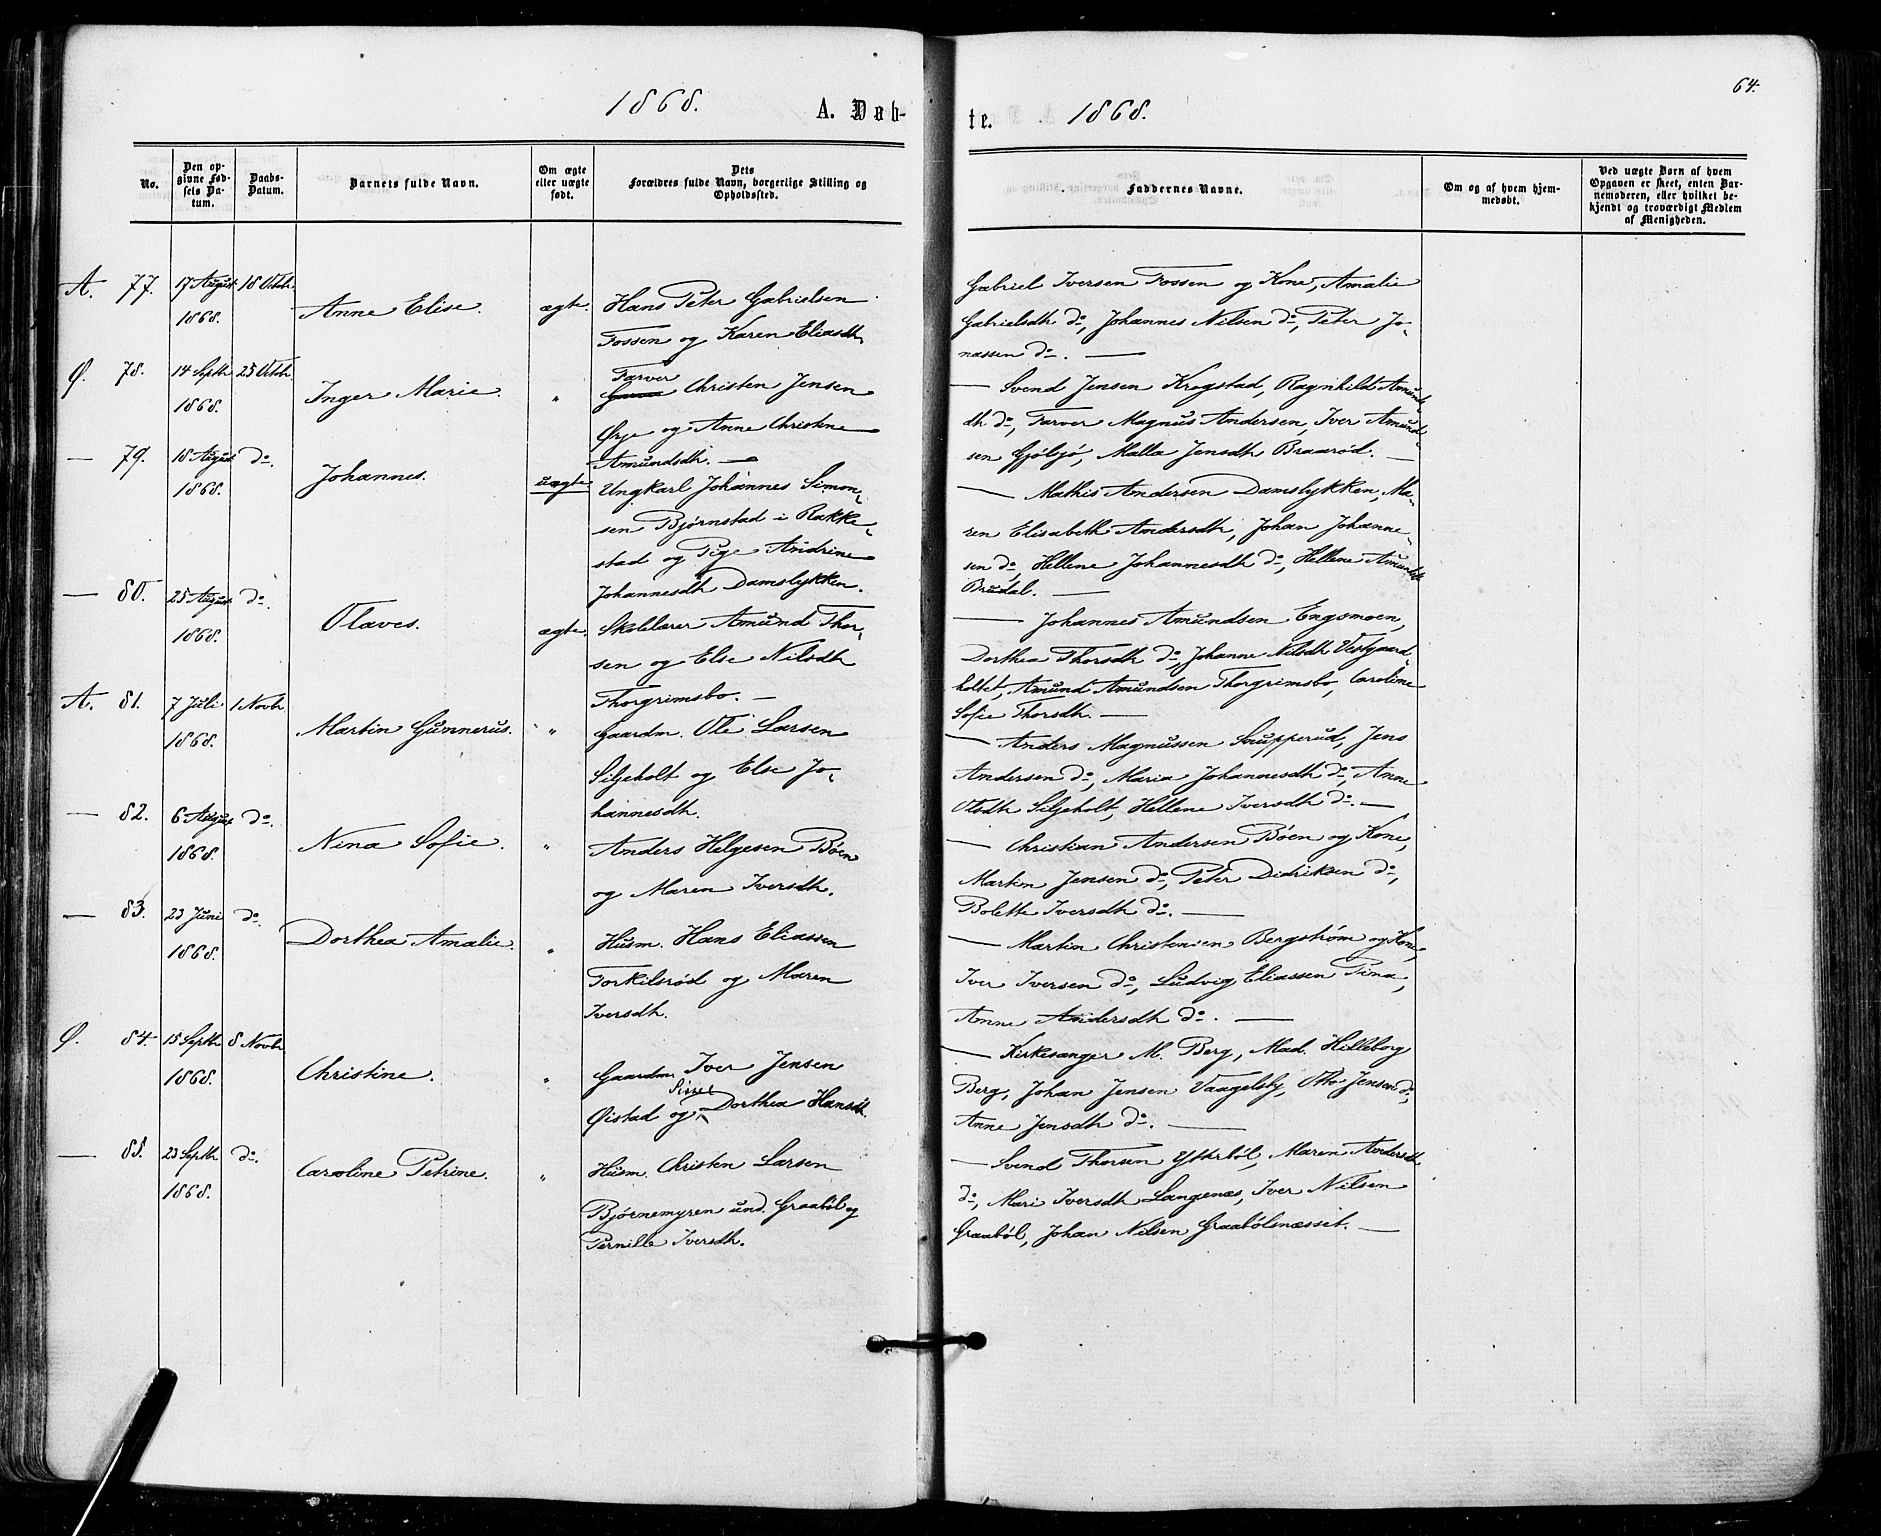 64.
1868. A. Døb-
te. 1868.
No.
Den op-
givne Fød-
sels Da-
tum.
Daabs-
Datum.
Barnets fulde Navn.
Om ægte
eller uægte
født.
Dets
Forældres fulde Navn, borgerlige Stilling og
Opholdssted.
Faddernes Navne.
Om og af hvem hjem-
medøbt.
Ved uægte Børn af hvem
Opgaven er skeet, enten Bar-
nemoderen, eller hvilket be-
kjendt og troværdigt Medlem
af Menigheden.
A. 77. 17 August 18 Octbr.
1868.
Anne Elise. ægte.
Hans Peter Gabrielsen
Fossen og Karen Eliasdtr.
Gabriel Iversen Fossen og Kone, Amalie
Gabrielsdtr do, Johannes Nilsen do, Peter Jo-
nassen do. —
Ø. 78. 14 Septbr 25 Octbr.
1868.
Inger Marie. "
Farver
Christen Jensen
Ørje og Anne Christine
Amundsdtr. —
— Svend Jensen Krogstad, Ragnhild Amunds-
dtr do, Farver Magnus Andersen, Iver Amund-
sen Gjølsjø, Malla Jensdtr Braarød. —
— 79. 18 August do.
1868.
Johannes. uægte.
Ungkarl Johannes Simon-
sen Bjørnstad i Rakke-
stad og Pige Andrine
Johannesdtr Damslykken.
— Mathis Andersen Damslykken, Ma-
ren Elisabeth Andersdtr, Johan Johanne-
sen do, Hellene Johannesdtr do, Hellene Amundsdtr
Brudal. —
— 80. 25 August do.
1868.
Olaves. ægte.
Skolelærer Amund Thor-
sen og Else Nilsdtr
Thorgrimsbo. —
— Johannes Amundsen Engsmoen,
Dorthea Thorsdtr do, Johanne Nilsdtr Vestgaard-
holtet, Amund Amundsen Thorgrimsbo, Caroline
Sofie Thorsdtr. —
A. 81. 7 Juli 1 Novbr
1868.
Martin Gunnerus. "
Gaardm. Ole Larsen
Siljeholt og Else Jo-
hannesdtr.
— Anders Magnussen Snupperud, Jens
Andersen do, Maria Johannesdtr do, Anne
Olsdtr Siljeholt, Hellene Iversdtr do. —
— 82. 6 August do.
1868.
Nina Sofie. "
Anders Helgesen Bøen
og Maren Iversdtr.
— Christian Andersen Bøen og Kone,
Martin Jensen do, Peter Didriksen do,
Bolette Iversdtr do. —
— 83. 23 Juni do.
1868.
Dorthea Amalie. "
Husm. Hans Eliassen
Torkilsrød og Maren
Iversdtr.
— Martin Christensen Bergstrøm og Kone,
Iver Iversen do, Ludvig Eliassen Tima,
Anne Andersdtr do. —
Ø. 84. 15 Septbr 8 Novbr
1868.
Christine. "
Gaardm. Iver Jensen
Øistad og Siri Dorthea Hansdtr.
— Kirkesanger M. Berg, Mad. Hilleborg
Berg, Johan Jensen Vaagelsby, Otto Jensen do,
Anne Jensdtr do. —
— 85. 23 Septbr do.
1868.
Caroline Petrine. "
Husm. Christen Larsen
Bjørnemyren und. Graabøl og
Pernille Iversdtr.
— Svend Thorsen Ytterbøl, Maren Andersdtr
do, Mari Iversdtr Langenæs, Iver Nilsen
Graabøl, Johan Nilsen Graabølsnæsset. —